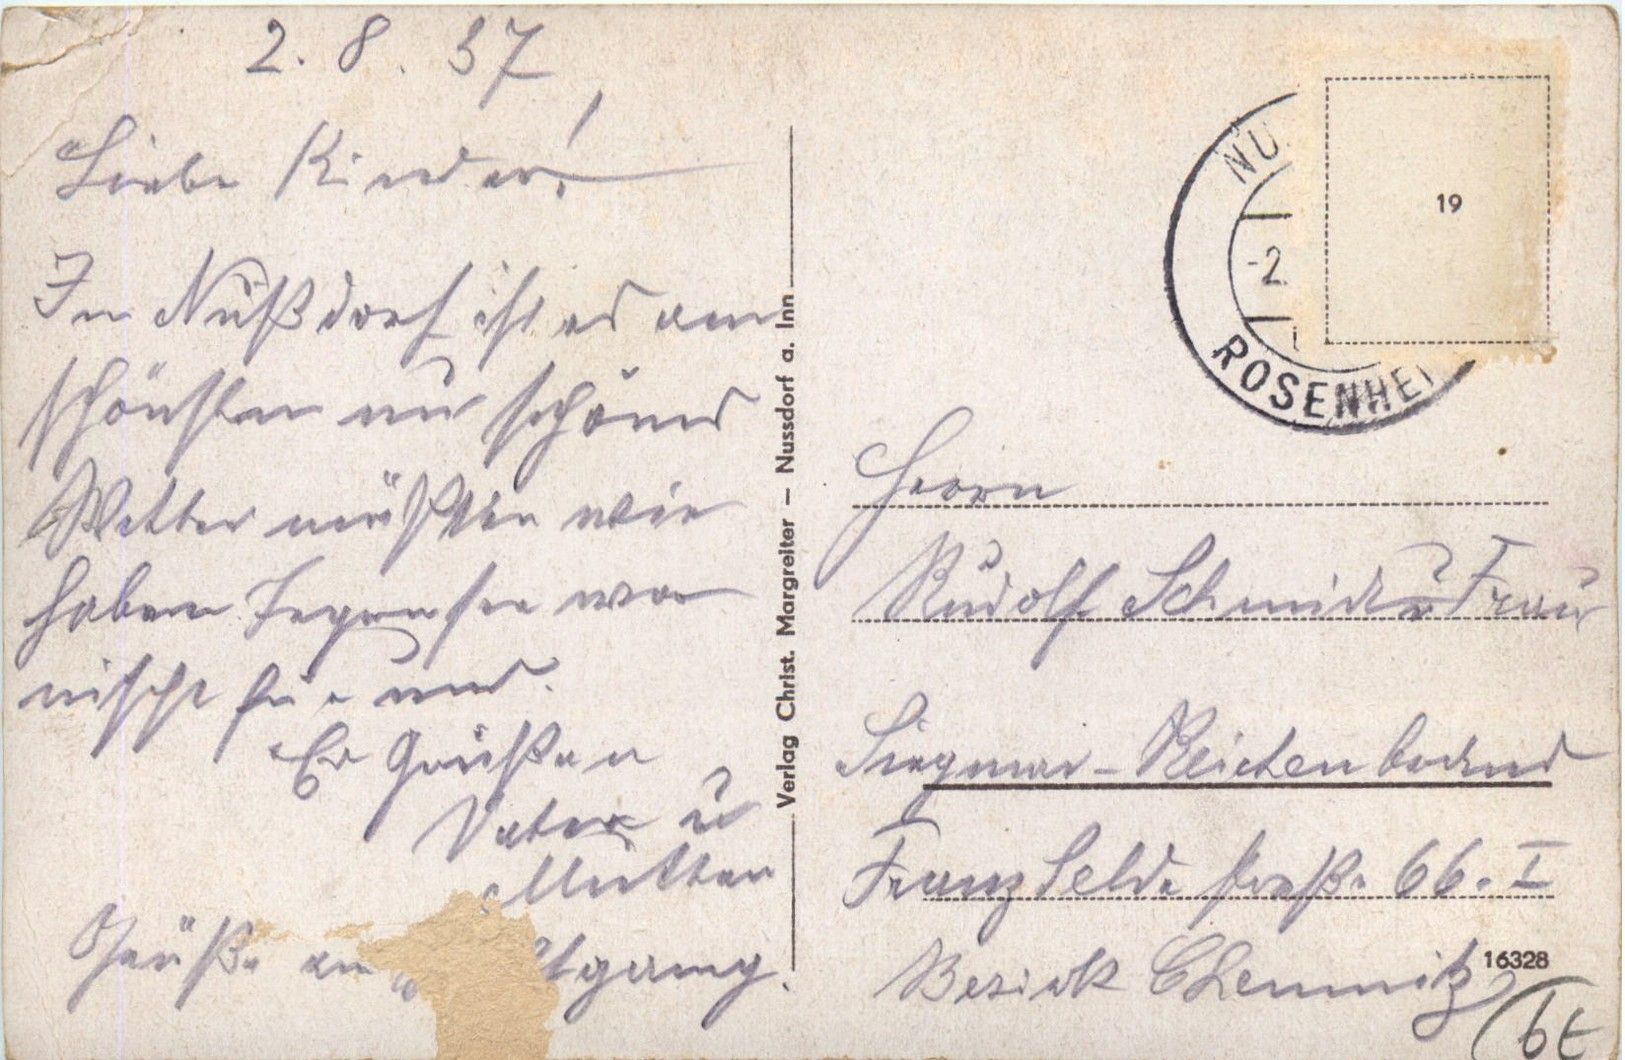 2. 8. 37
Liebe Kinder!
In Nußdorf ist es am
schönsten nur schönes
Wetter müßten wir
haben Tegernsee war
nischt für uns.
Es Grüßen
Vater u
Mutter
Grüße an
Verlag Christ. Margreiter – Nussdorf a. Inn
NU
-2.
ROSENHEI
19
Herrn
Rudolf Schmidt u Frau
Siegmar-Reichenbrand
Franz Seldte straße 66. I
Bezirk Chemnitz
16328
6t